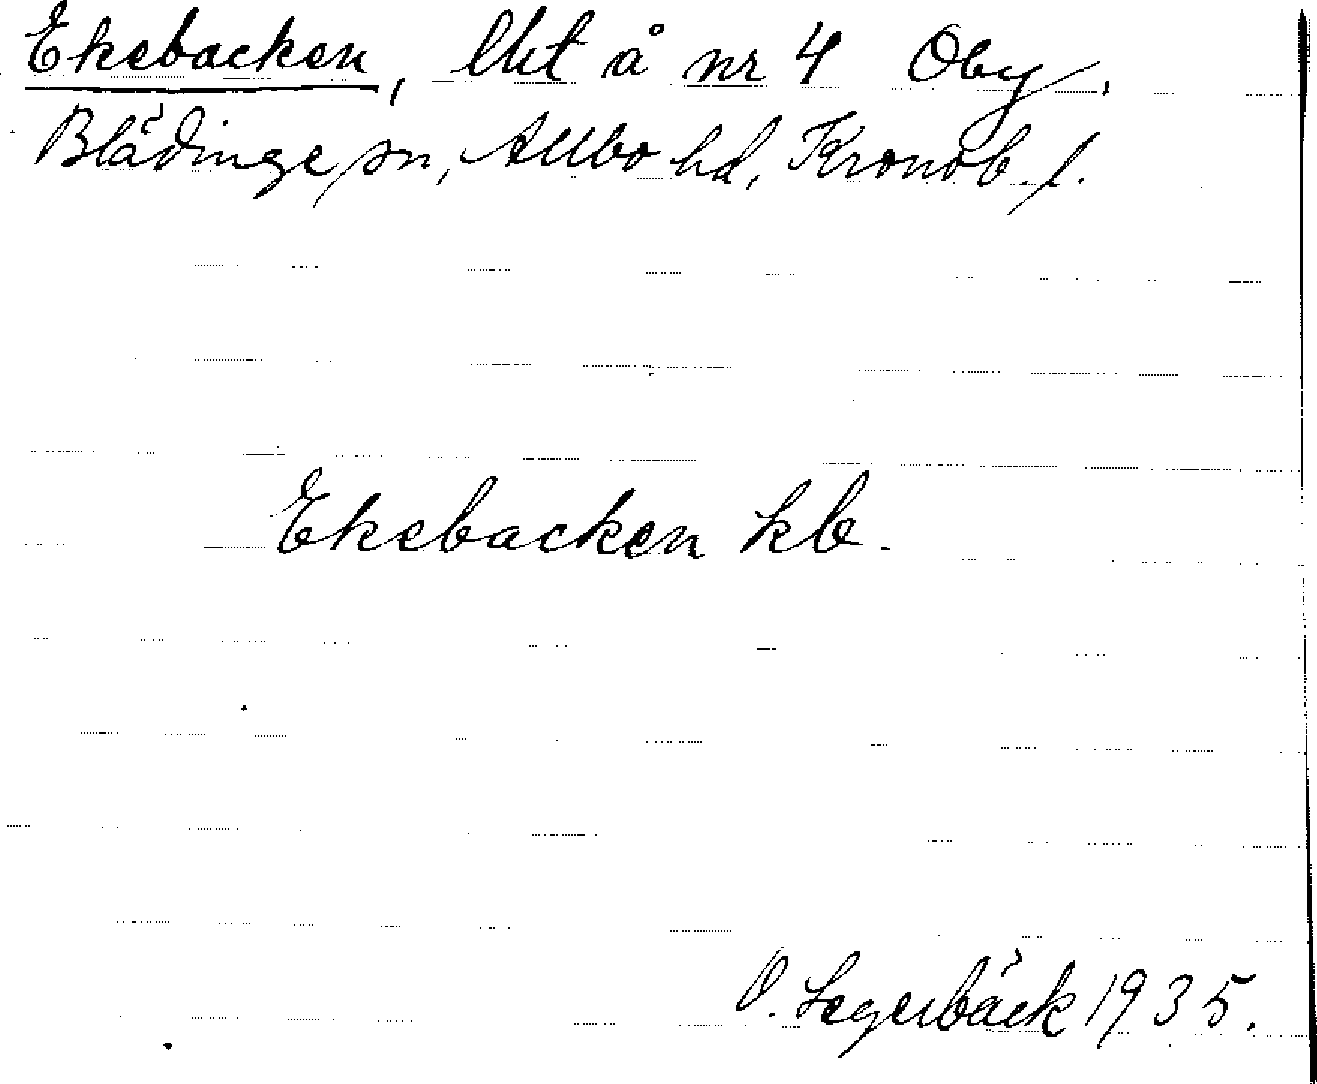 Ekebacken, lht å nr 4 Oby,
Blädinge sn, Allbo hd, Kronob. l.
Ekebacken kb.
O. Segerbäck 1935.